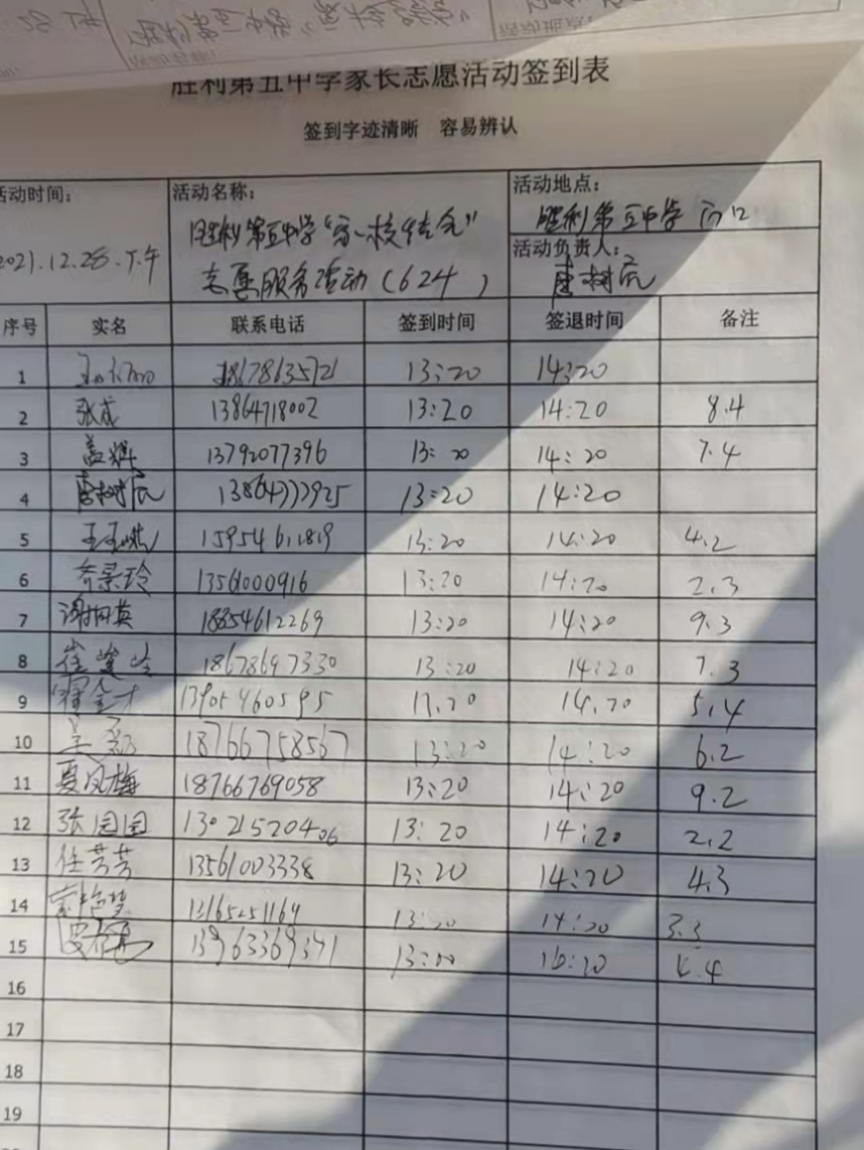 胜利第五中学家长志愿活动签到表
签到字迹清晰 容易辨认
活动时间: 2021.12.28.下午
活动名称: 胜利第五中学“家一校
志愿服务活动(624)
活动地点: 胜利第五中学门口
活动负责人: 唐树
序号 实名 联系电话 签到时间 签退时间 备注
1 13:20 14:20
2 张成 13864718002 13:20 14:20 8.4
3 盖辉 13792077396 13:20 14:20 7.4
4 唐树 13:20 14:20
5 13:20 14:20 4.2
6 齐景玲 13561000916 13:20 14:20 2.3
7 谢 18354612269 13:20 14:20 9.3
8 崔 18678697330 13:20 14:20 7.3
9 金才 13905460595 14.20 5.4
10 吴 18766758567 13:20 14:20 6.2
11 夏凤梅 18766769058 13:20 14:20 9.2
12 张园园 13021520406 13:20 14:20 2.2
13 任芳芳 13561003338 13:20 14:20 4.3
14 13165251164 13:20 14:20 3.3
15 13963369341 13:00
16
17
18
19